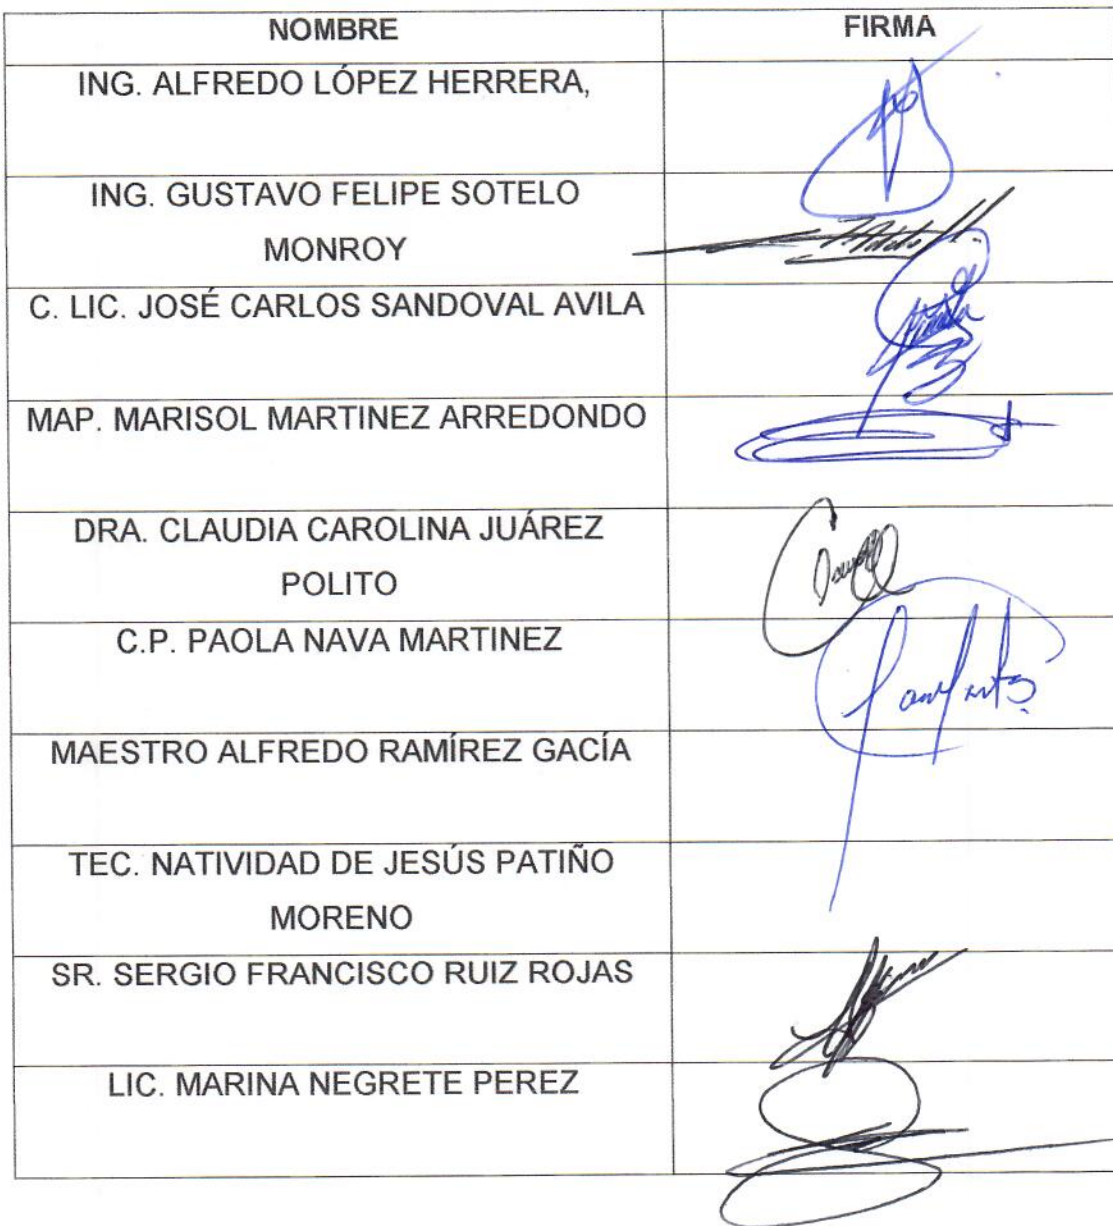 NOMBRE FIRMA
ING. ALFREDO LÓPEZ HERRERA,
ING. GUSTAVO FELIPE SOTELO
MONROY
C. LIC. JOSÉ CARLOS SANDOVAL AVILA
MAP. MARISOL MARTINEZ ARREDONDO
DRA. CLAUDIA CAROLINA JUÁREZ
POLITO
C.P. PAOLA NAVA MARTINEZ
MAESTRO ALFREDO RAMÍREZ GACÍA
TEC. NATIVIDAD DE JESÚS PATIÑO
MORENO
SR. SERGIO FRANCISCO RUIZ ROJAS
LIC. MARINA NEGRETE PEREZ